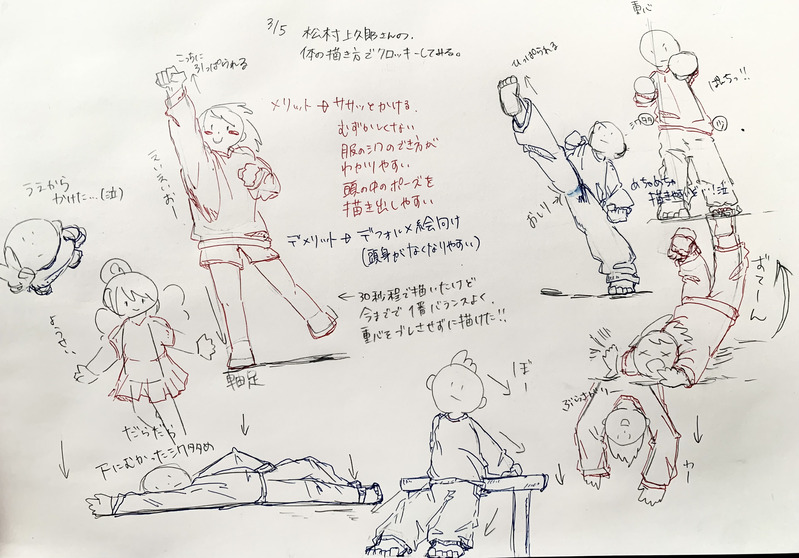 3/5 松村上久郎さんの、
体の描き方でクロッキーしてみる。
こっちに
引っぱられる
えいえいおー
メリット→ササッとかける、
むずかしくない
服のシワのでき方が
わかりやすい
頭の中のポーズを
描き出しやすい
デメリット→デフォルメ絵向け
(頭身がなくなりやすい)
←30秒程で描いたけど
今までで1番バランスよく、
重心をブレさせずに描けた!!
軸足
うえから
かけた…(泣)
ようせい
ひっぱられる
おしり
重心
ぱんちっ!!
シワタタ
めちゃめちゃ
描きやすいど…!泣
ずてーん
ぶらさがり
わー
だらだら
下にむかったシワタタめ
ぼー